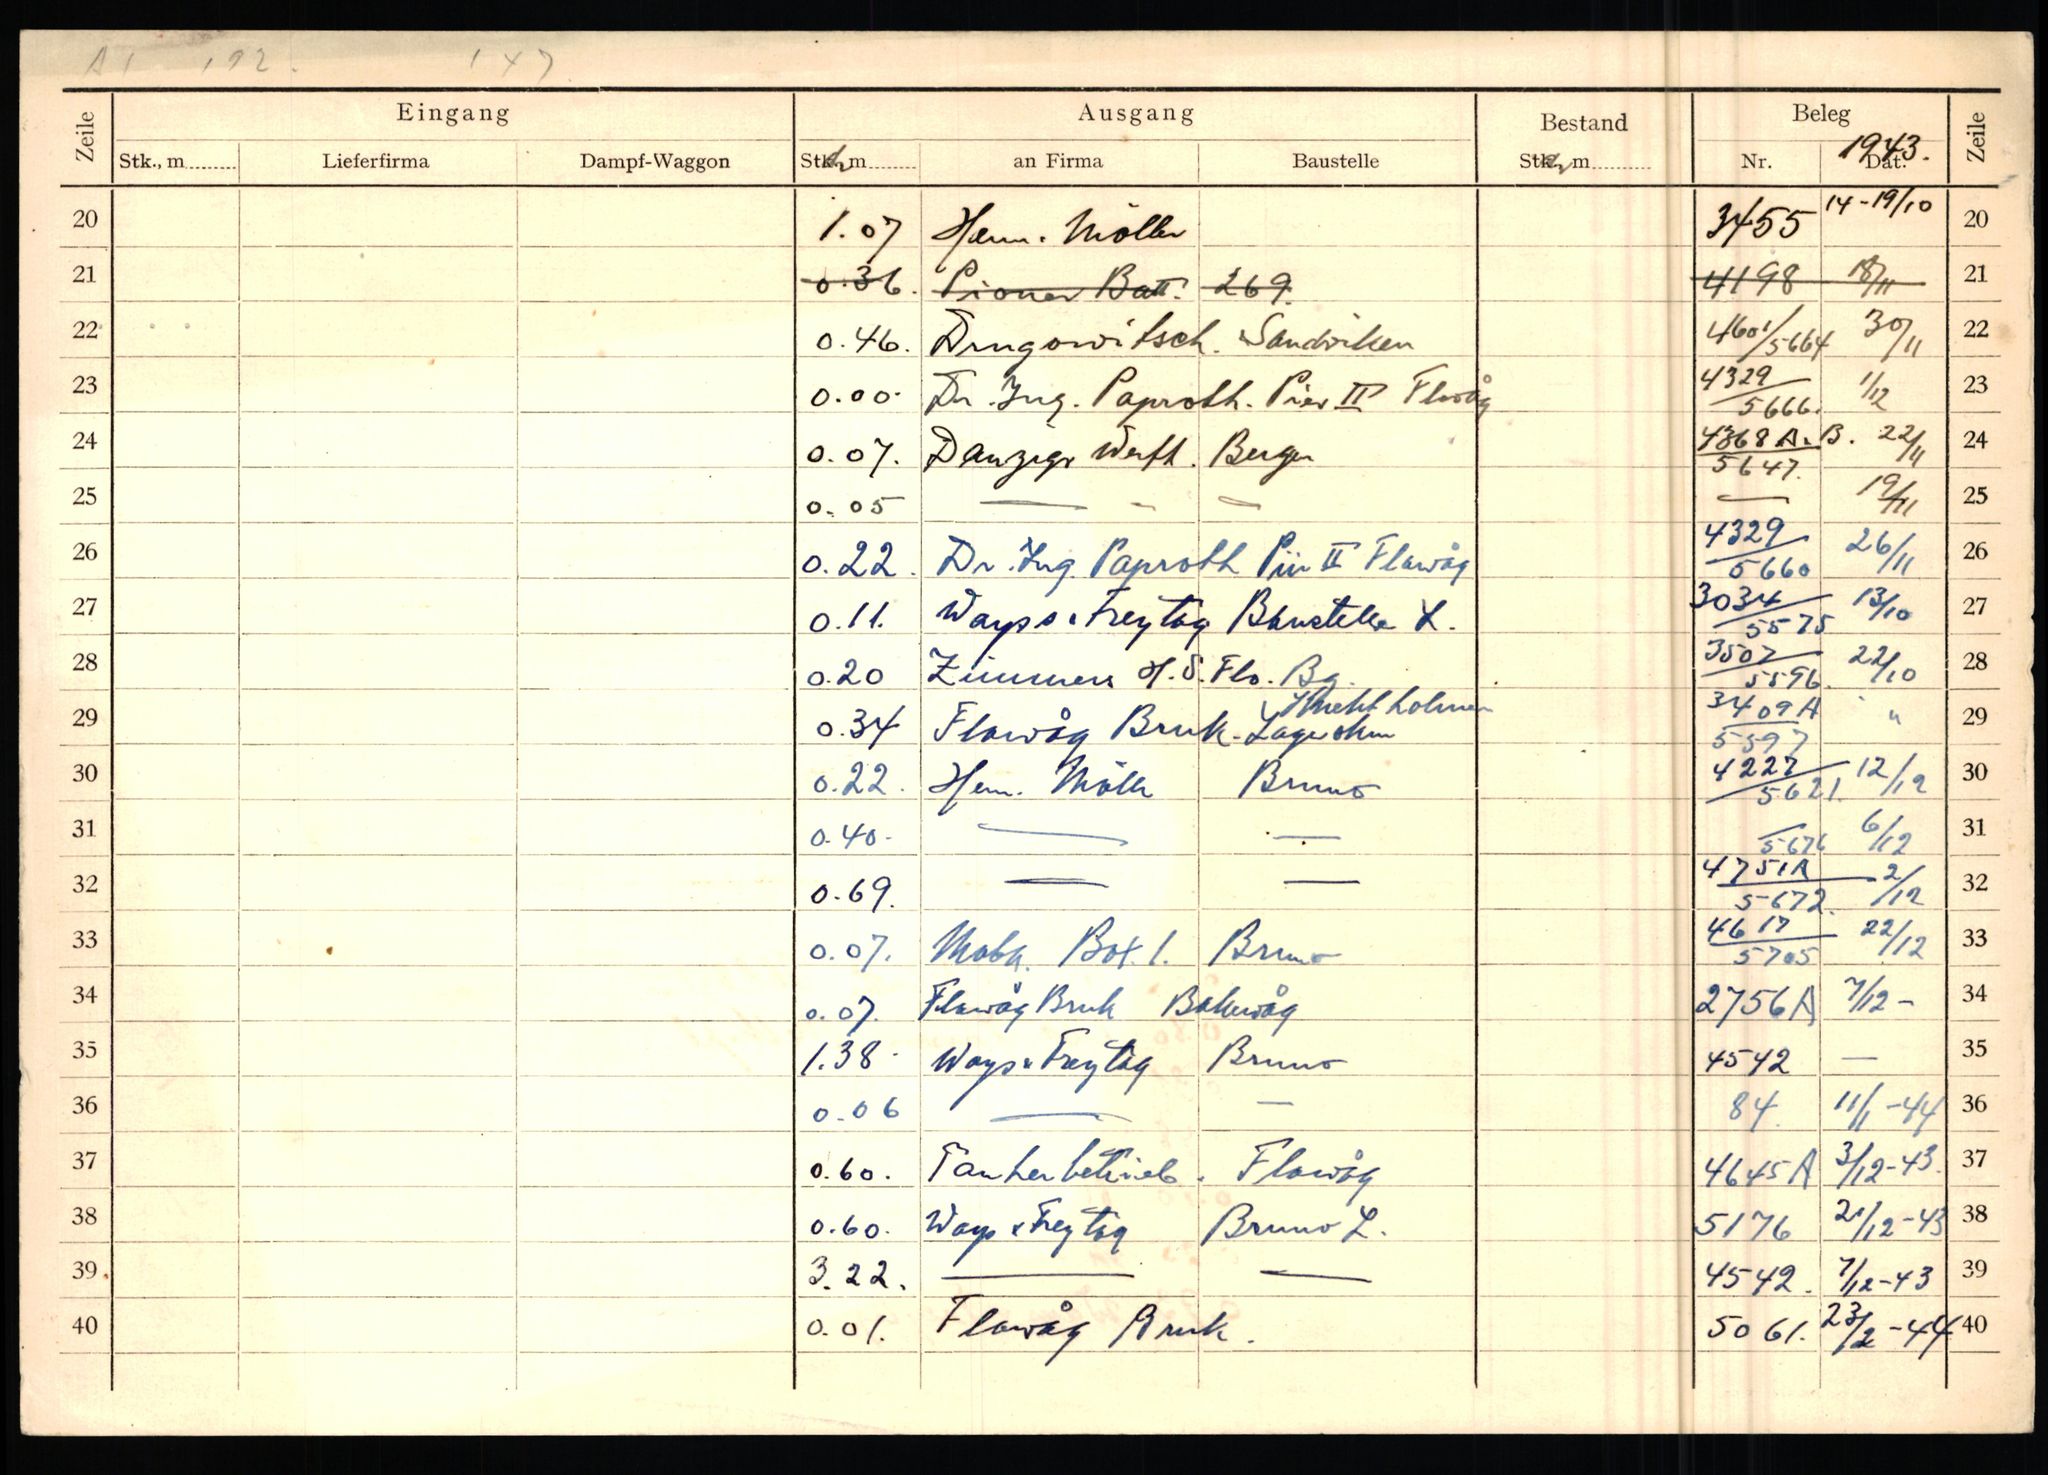 A1 192. 1x7
Zeile Eingang Ausgang Bestand Beleg Zeile
1943.
Stk., m Lieferfirma Dampf-Waggon Stk., m an Firma Baustelle Stk., m Nr. Dat.
20 1.07 Herm. Möller 3455 14-19/10 20
21 0.36. Pionier Batt. 269. 4198 18/11 21
22 0.46. Drugowitsch. Sandviken 4601/5664 30/11 22
23 0.00. Dr. Ing. Paproth. Pier II Flawåg 4329/5666. 1/12 23
24 0.07. Danzigr Werft. Bergen 4368 A.B./5647. 22/11 24
25 0.05 — - — — 19/11 25
26 0.22. Dr. Ing. Paproth Pier II Flawåg 4329/5660 26/11 26
27 0.11. Wayss & Freytag Baustelle L. 3034/5575 13/10 27
28 0.20 Zimmers H.S. Flo. Bg. 3507/5596. 22/10 28
29 0.34 Flawåg Bruk. Lager 3409A/5597 " 29
30 0.22. Herm. Möller Bruno 4227/5621. 12/12 30
31 0.40. — — —/5676 6/12 31
32 0.69. — — 4751A/5672. 2/12 32
33 0.07. Bat. 1. Bruno 4617/5705 22/12 33
34 0.07. Flawåg Bruk Bakewåg 2756A 7/12 - 34
35 1.38. Ways & Freytag Bruno 4542 — 35
36 0.06 — — 84. 11/1-44 36
37 0.60. Taucherbetrieb. Flawåg 4645A 3/12-43. 37
38 0.60. Ways & Freytag Bruno L. 5176 21/12-43 38
39 3.22. — — 4542. 7/12-43 39
40 0.01. Flawåg Bruk. 5061. 23/2-44 40